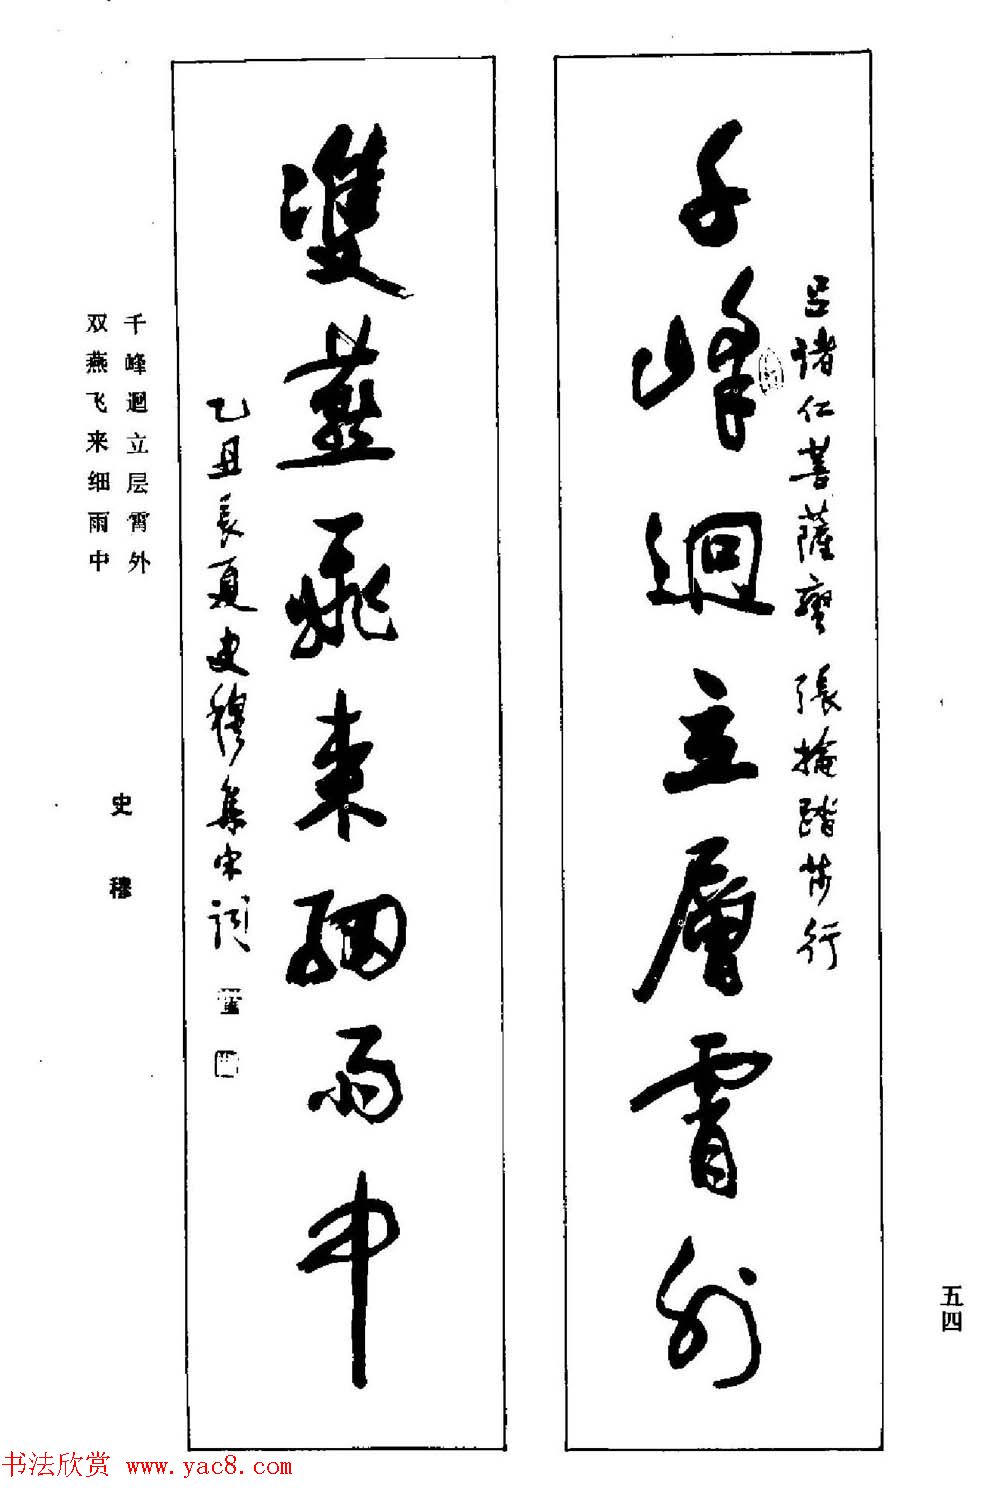 呂诸仁菩薩蠻 張掄踏莎行
千峰迥立層霄外
雙燕飛來細雨中
乙丑長夏史穆集宋词
千峰迴立层霄外
双燕飞来细雨中
史穆
五四
书法欣赏 www.yac8.com